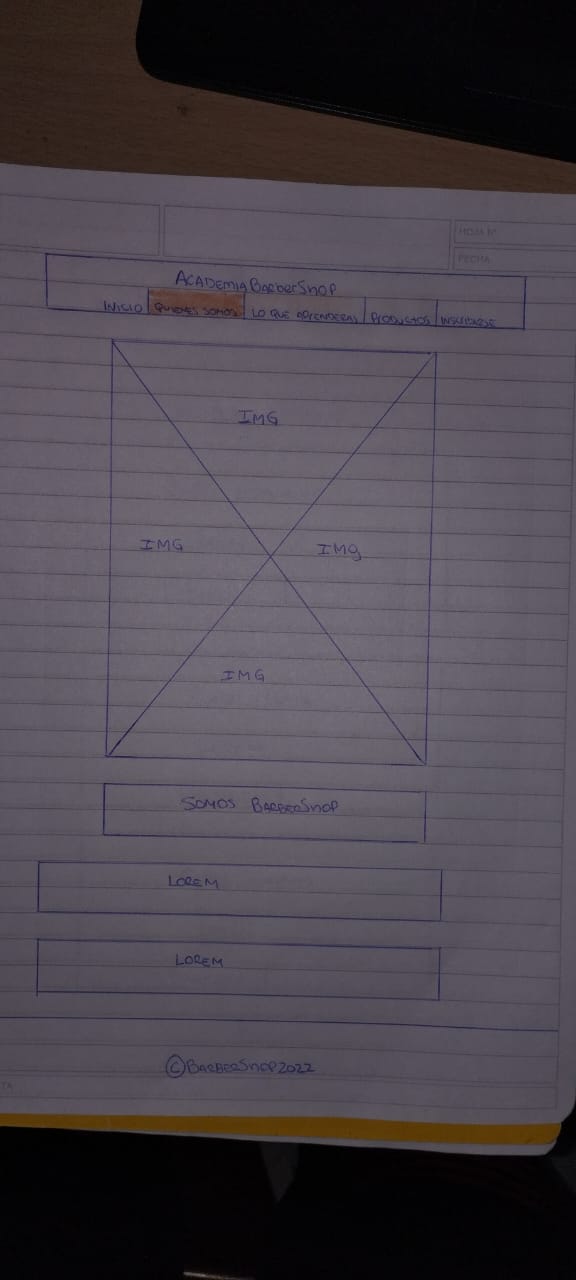 HOJA Nº
FECHA
ACADEMIA BarberShop
INICIO QUIENES SOMOS LO QUE APRENDERAS PRODUCTOS INSCRIBIRSE
IMG
IMG IMg
IMG
SOMOS BARBERShOP
LOREM
LOREM
©BARBERShOP2022
TA